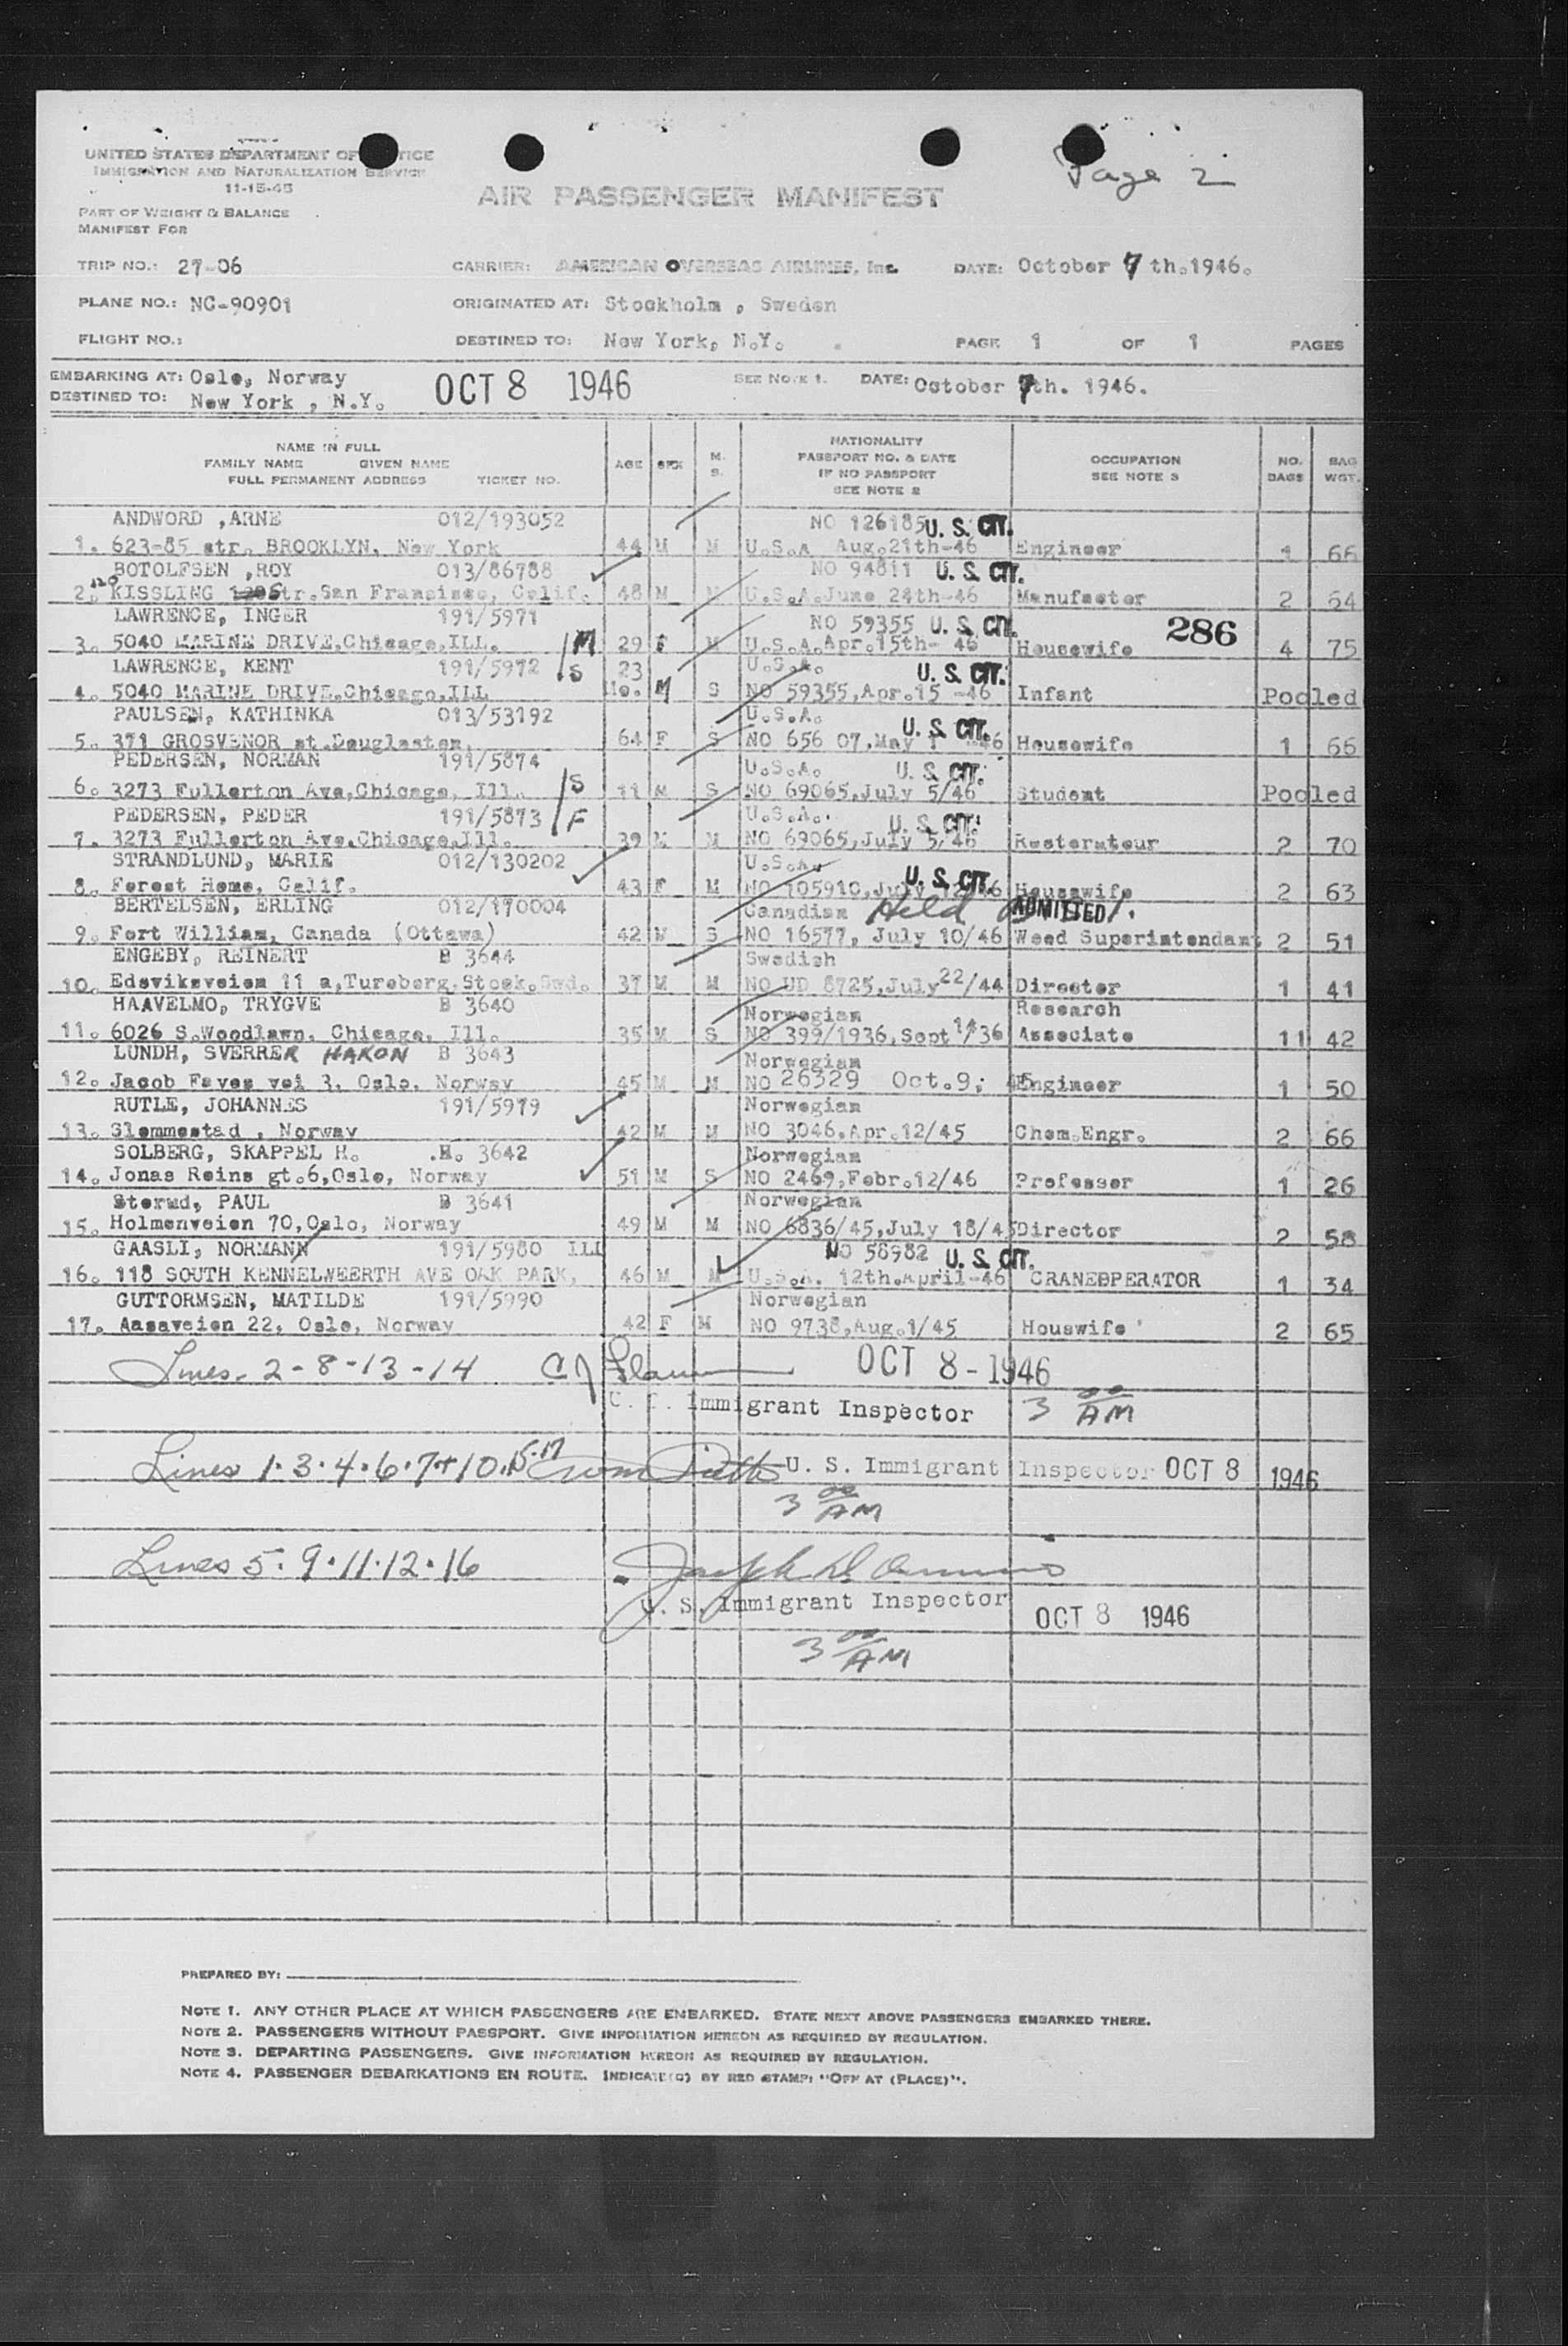 Page 2
UNITED STATES DEPARTMENT OF JUSTICE
IMMIGRATION AND NATURALIZATION SERVICE
11-15-45
AIR PASSENGER MANIFEST
PART OF WEIGHT & BALANCE
MANIFEST FOR
TRIP NO.: 27-06 CARRIER: AMERICAN OVERSEAS AIRLINES, Inc. DATE: October 7 th.1946.
PLANE NO.: NC-90901 ORIGINATED AT: Stockholm , Sweden
FLIGHT NO.: DESTINED TO: New York, N.Y. PAGE 1 OF 1 PAGES
EMBARKING AT: Oslo, Norway OCT 8 1946 SEE NOTE 1. DATE: October 7th. 1946.
DESTINED TO: New York , N.Y.
NAME IN FULL
FAMILY NAME GIVEN NAME
FULL PERMANENT ADDRESS TICKET NO.
AGE SEX M. S.
NATIONALITY
PASSPORT NO. & DATE
IF NO PASSPORT
SEE NOTE 2
OCCUPATION
SEE NOTE 3
NO. BAGS
BAG WGT.
ANDWORD ,ARNE 012/193052 NO 126185 U. S. CIT.
1. 623-85 str. BROOKLYN, New York 44 M M U.S.A Aug.21th-46 Engineer 1 66
BOTOLFSEN ,ROY 013/86788 NO 94811 U. S. CIT.
2. KISSLING str.San Fransisco, Calif. 48 M M U.S.A.June 24th-46 Manufactor 2 64
LAWRENCE, INGER 191/5971 NO 59355 U. S. CIT. 286
3. 5040 MARINE DRIVE,Chicago,ILL. M 29 F M U.S.A.Apr.15th- 46 Housewife 4 75
LAWRENCE, KENT 191/5972 S 23 U.S.A. U. S. CIT.
4. 5040 MARINE DRIVE.Chicago,ILL Mo. M S NO 59355,Apr.15 -46 Infant Pooled
PAULSEN, KATHINKA 013/53192 U.S.A.
5. 371 GROSVENOR st.Douglaston, 64 F S NO 656 07,May 1 -46 U. S. CIT. Housewife 1 66
PEDERSEN, NORMAN 191/5874 U.S.A. U. S. CIT.
6. 3273 Fullerton Ave,Chicago, Ill. S 11 M S NO 69065,July 5/46 Student Pooled
PEDERSEN, PEDER 191/5873 F U.S.A. U. S. CIT.
7. 3273 Fullerton Ave.Chicago,Ill. 39 M M NO 69065,July 5/46 Resterateur 2 70
STRANDLUND, MARIE 012/130202 U.S.A.
8. Forest Home, Calif. 43 F M NO 105910,July 12/46 U. S. CIT. Housewife 2 63
BERTELSEN, ERLING 012/170004 Canadian Held ADMITTED
9. Fort William, Canada (Ottawa) 42 M S NO 16577, July 10/46 Wood Superintendant 2 51
ENGEBY, REINERT B 3644 Swedish
10. Edsviksveien 11 a,Tureberg.Stock.Swd. 37 M M NO UD 8725,July 22/44 Director 1 41
HAAVELMO, TRYGVE B 3640 Norwegian Research
11. 6026 S.Woodlawn, Chicago, Ill. 35 M S NO 399/1936,Sept 14/36 Associate 11 42
LUNDH, SVERRER HAKON B 3643 Norwegian
12. Jacob Fayes vei 3, Oslo, Norway 45 M M NO 26329 Oct.9, 45 Engineer 1 50
RUTLE, JOHANNES 191/5979 Norwegian
13. Slemmestad , Norway 42 M M NO 3046,Apr.12/45 Chem.Engr. 2 66
SOLBERG, SKAPPEL H. B. 3642 Norwegian
14. Jonas Reins gt.6,Oslo, Norway 51 M S NO 2469,Febr.12/46 Professor 1 26
Sterud, PAUL B 3641 Norwegian
15. Holmenveien 70,Oslo, Norway 49 M M NO 6836/45,July 18/45 Director 2 58
GAASLI, NORMANN 191/5980 ILL NO 58982 U. S. CIT.
16. 118 SOUTH KENNELWEERTH AVE OAK PARK, 46 M M U.S.A. 12th.April-46 CRANEOPERATOR 1 34
GUTTORMSEN, MATILDE 191/5990 Norwegian
17. Aasaveien 22, Oslo, Norway 42 F M NO 9738,Aug.1/45 Houswife 2 65
Lines - 2 - 8 - 13 - 14 OCT 8 - 1946
U. S. Immigrant Inspector 3 00 AM
Lines 1.3.4.6.7+10.15.17 U. S. Immigrant Inspector OCT 8 1946
3 00 AM
Lines 5. 9.11.12.16 Joseph
U. S. Immigrant Inspector OCT 8 1946
3 00 AM
PREPARED BY:
NOTE 1. ANY OTHER PLACE AT WHICH PASSENGERS ARE EMBARKED. STATE NEXT ABOVE PASSENGERS EMBARKED THERE.
NOTE 2. PASSENGERS WITHOUT PASSPORT. GIVE INFORMATION HEREON AS REQUIRED BY REGULATION.
NOTE 3. DEPARTING PASSENGERS. GIVE INFORMATION HEREON AS REQUIRED BY REGULATION.
NOTE 4. PASSENGER DEBARKATIONS EN ROUTE. INDICATE(D) BY RED STAMP: "OFF AT (PLACE)".